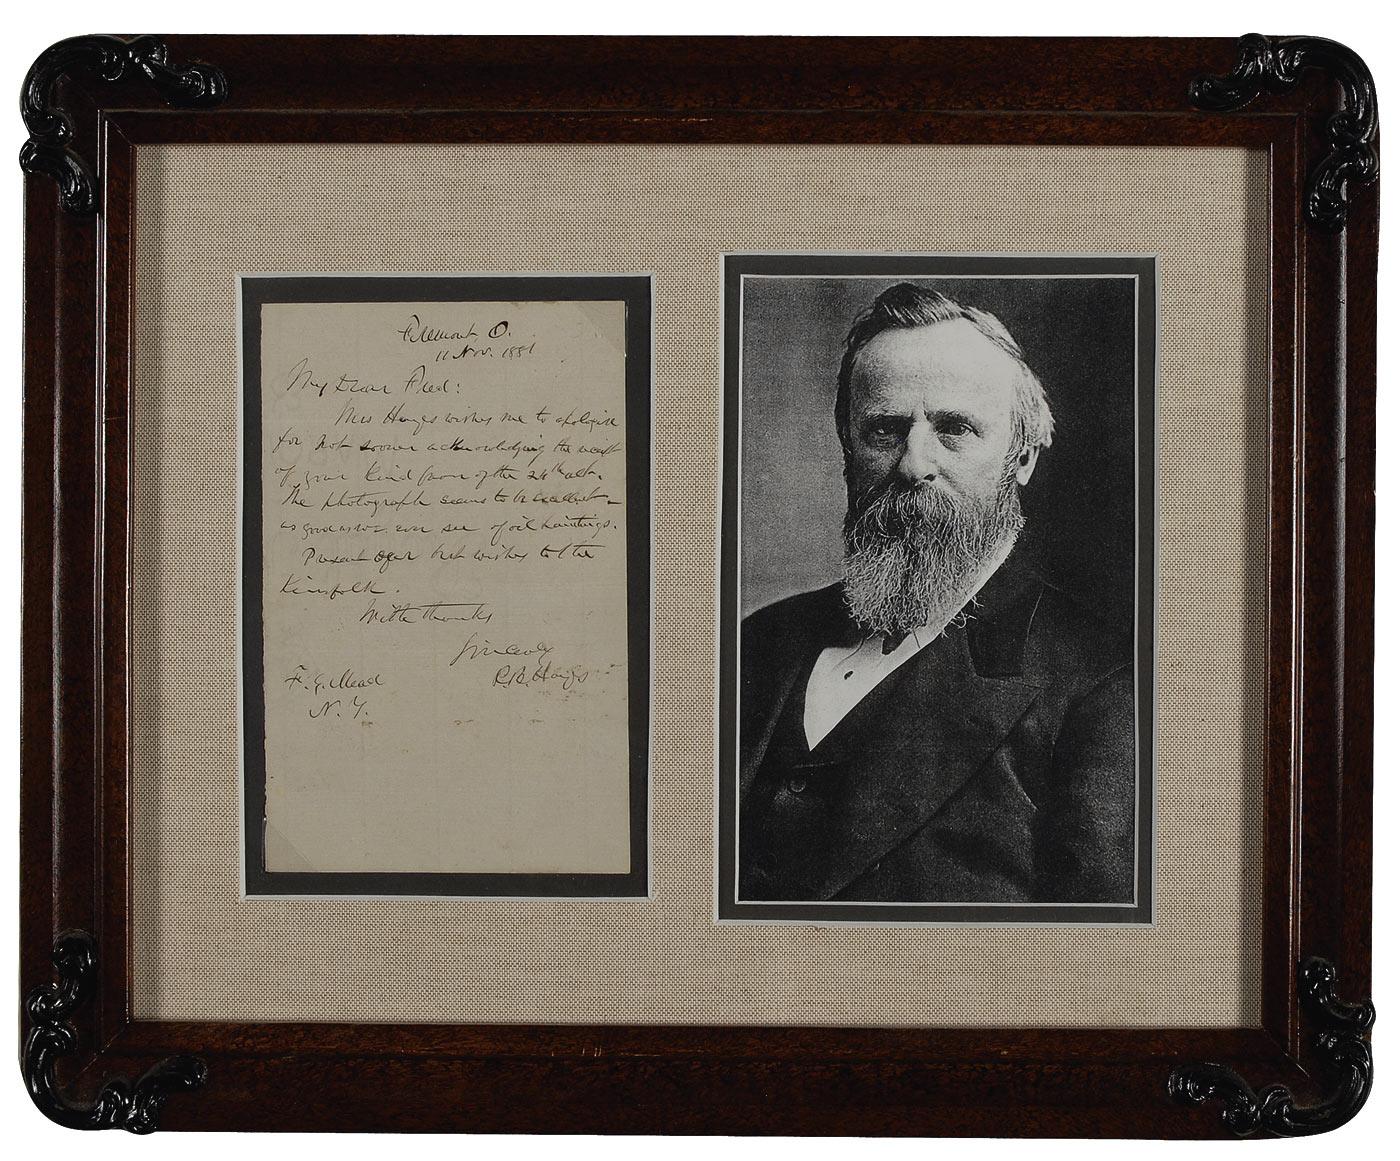 Fremont O.
11 Nov. 1881
My Dear Fred:
Mrs Hayes wishes me to apologise
for not sooner acknowledging the receipt
of your kind favor of the 24th ult.
The photograph seems to be excellent -
as good as we ever see of oil paintings.
Present our best wishes to the
Kinsfolk.
With thanks
Sincerely
R. B. Hayes
F. G. Mead
N. Y.